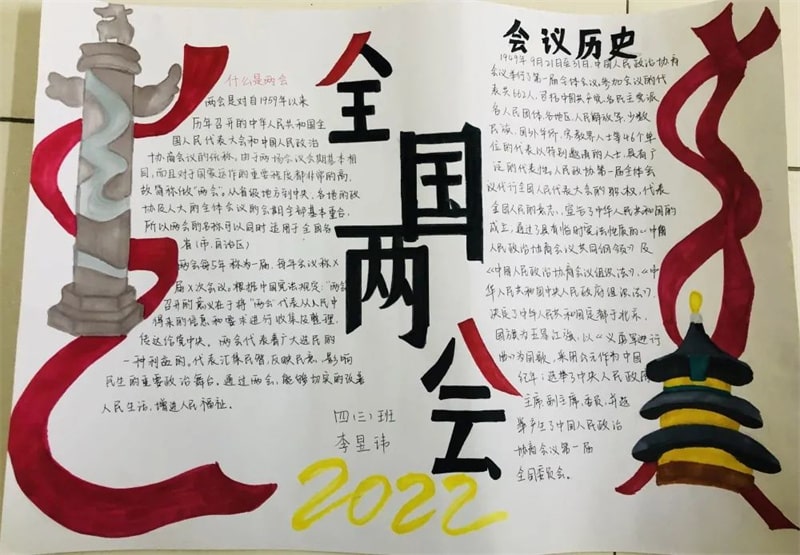 全国两会
什么是两会
两会是对自1959年以来
历年召开的中华人民共和国全
国人民代表大会和中国人民政治
协商会议的统称。由于两场会议会期基本相
同,而且对于国家运作的重要程度都非常的高,
故简称做“两会”。从省级地方到中央,各地的政
协及人大的全体会议的会期全部基本重合,
所以两会的名称可以同时适用于全国各
省(市、自治区)
两会每5年称为一届,每年会议称X
届X次会议,根据中国宪法规定:“两会
召开的意义在于将“两会”代表从人民中
得来的信息和要求进行收集及整理,
传达给党中央。两会代表着广大选民的
一种利益的。代表汇集民智,反映民意,影响
民生的重要政治舞台。通过两会,能够切实的改善
人民生活,增进人民福祉。
四(三)班
李昱玮
2022
会议历史
1949年9月21日至31日,中国人民政治协商
会议举行了第一届全体会议。参加会议的代
表共662人,包括中国共产党、各民主党派
各人民团体、各地区、人民解放军、少数
民族、国外华侨、宗教界人士等46个单
位的代表以特别邀请的人士,具有广
泛的代表性。人民政协第一届全体会
议代行全国人民代表大会的职权,代表
全国人民的意志,宣告了中华人民共和国的
成立,通过了具有临时宪法性质的《中国
人民政治协商会议共同纲领》及
《中国人民政治协商会议组织法》,《中
华人民共和国中央人民政府组织法》,
决定了中华人民共和国定都于北京,
国旗为五星红旗,以《义勇军进行
曲》为国歌,采用公元作为中国
纪年;选举了中央人民政府
主席、副主席、委员,并选
举产生了中国人民政治
协商会议第一届
全国委员会。